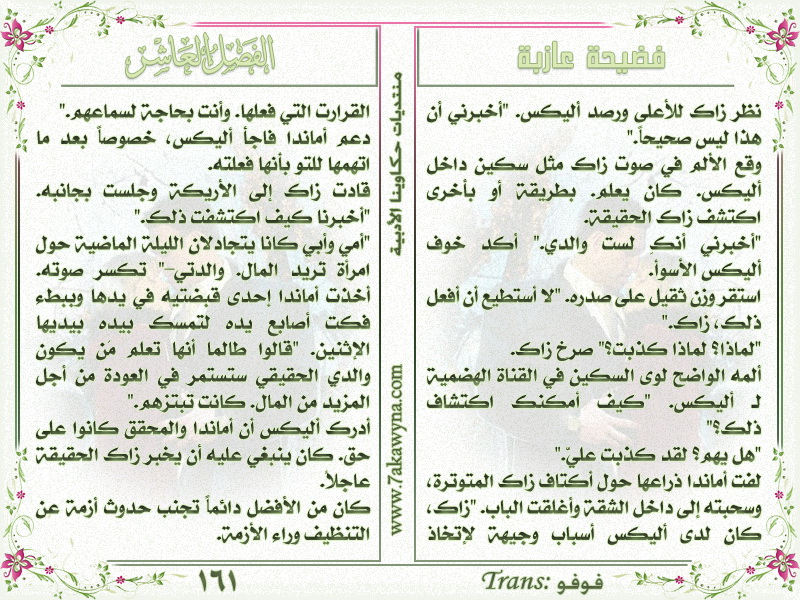 فضيحة عازبة
نظر زاك للأعلى ورصد أليكس. "أخبرني أن
هذا ليس صحيحاً."
وقع الألم في صوت زاك مثل سكين داخل
أليكس. كان يعلم. بطريقة أو بأخرى
اكتشف زاك الحقيقة.
"أخبرني أنكِ لست والدي." أكد خوف
أليكس الأسوأ.
استقر وزن ثقيل على صدره. "لا أستطيع أن أفعل
ذلك، زاك."
"لماذا؟ لماذا كذبت؟" صرخ زاك.
ألمه الواضح لوى السكين في القناة الهضمية
لـ أليكس. "كيف أمكنك اكتشاف
ذلك؟"
"هل يهم؟ لقد كذبت عليّ."
لفت أماندا ذراعها حول أكتاف زاك المتوترة،
وسحبته إلى داخل الشقة وأغلقت الباب. "زاك،
كان لدى أليكس أسباب وجيهة لإتخاذ
الفصل العاشر
القرارت التي فعلها. وأنت بحاجة لسماعهم."
دعم أماندا فاجأ أليكس، خصوصاً بعد ما
اتهمها للتو بأنها فعلته.
قادت زاك إلى الأريكة وجلست بجانبه.
"أخبرنا كيف اكتشفت ذلك."
"أمي وأبي كانا يتجادلان الليلة الماضية حول
امرأة تريد المال. والدتي–" تكسر صوته.
أخذت أماندا إحدى قبضتيه في يدها وببطء
فكت أصابع يده لتمسك بيده بيديها
الإثنين. "قالوا طالما أنها تعلم مَن يكون
والدي الحقيقي ستستمر في العودة من أجل
المزيد من المال. كانت تبتزهم."
أدرك أليكس أن أماندا والمحقق كانوا على
حق. كان ينبغي عليه أن يخبر زاك الحقيقة
عاجلاً.
كان من الأفضل دائماً تجنب حدوث أزمة عن
التنظيف وراء الأزمة.
منتديات حكاوينا الأدبية
www.7akawyna.com
Trans: فوفو
١٦١